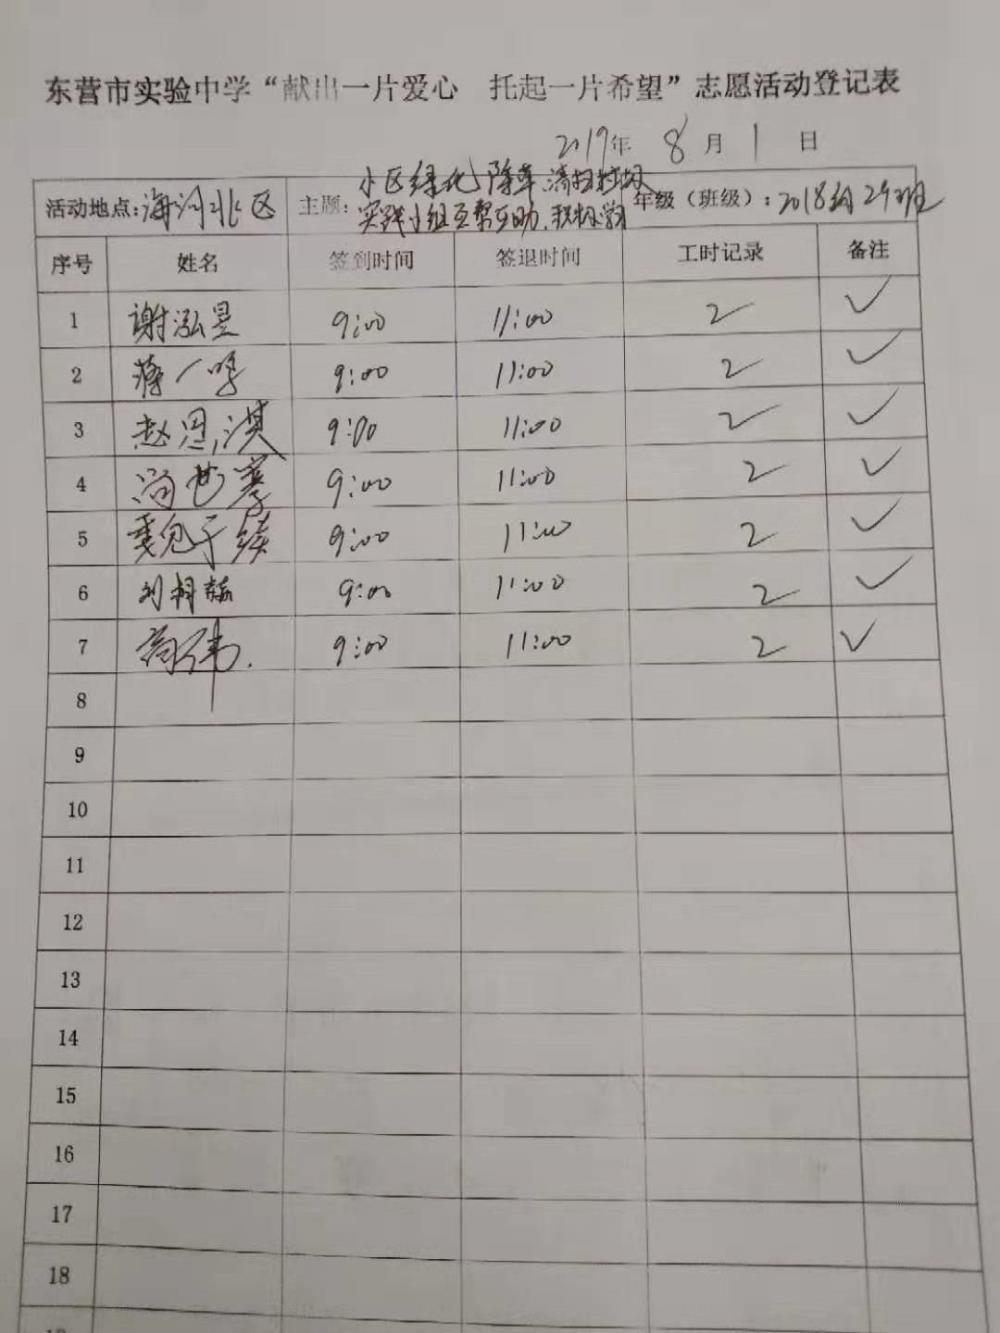 东营市实验中学“献出一片爱心 托起一片希望”志愿活动登记表
2019年 8月1日
活动地点:海河北区 主题:小区绿化 除草 清扫垃圾 年级(班级):2018级29班
实践小组互帮互助
序号 姓名 签到时间 签退时间 工时记录 备注
1 谢泓昱 9:00 11:00 2 ✓
2 蒋一鸣 9:00 11:00 2 ✓
3 赵恩淇 9:00 11:00 2 ✓
4 尚 9:00 11:00 2 ✓
5 9:00 11:00 2 ✓
6 刘 9:00 11:00 2 ✓
7 9:00 11:00 2 ✓
8
9
10
11
12
13
14
15
16
17
18